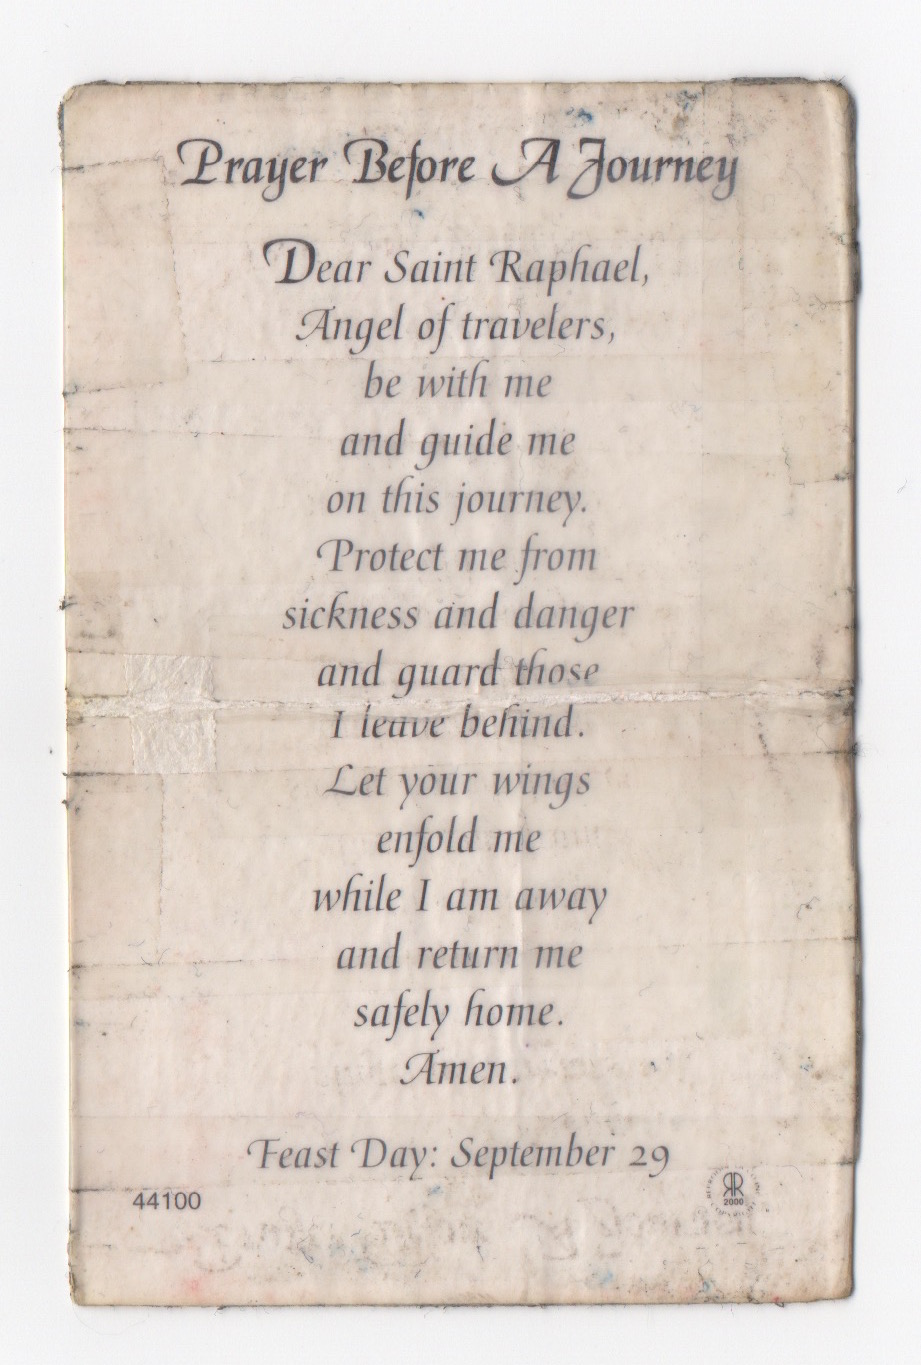 Prayer Before A Journey
Dear Saint Raphael,
Angel of travelers,
be with me
and guide me
on this journey.
Protect me from
sickness and danger
and guard those
I leave behind.
Let your wings
enfold me
while I am away
and return me
safely home.
Amen.
Feast Day: September 29
44100
RR
2000